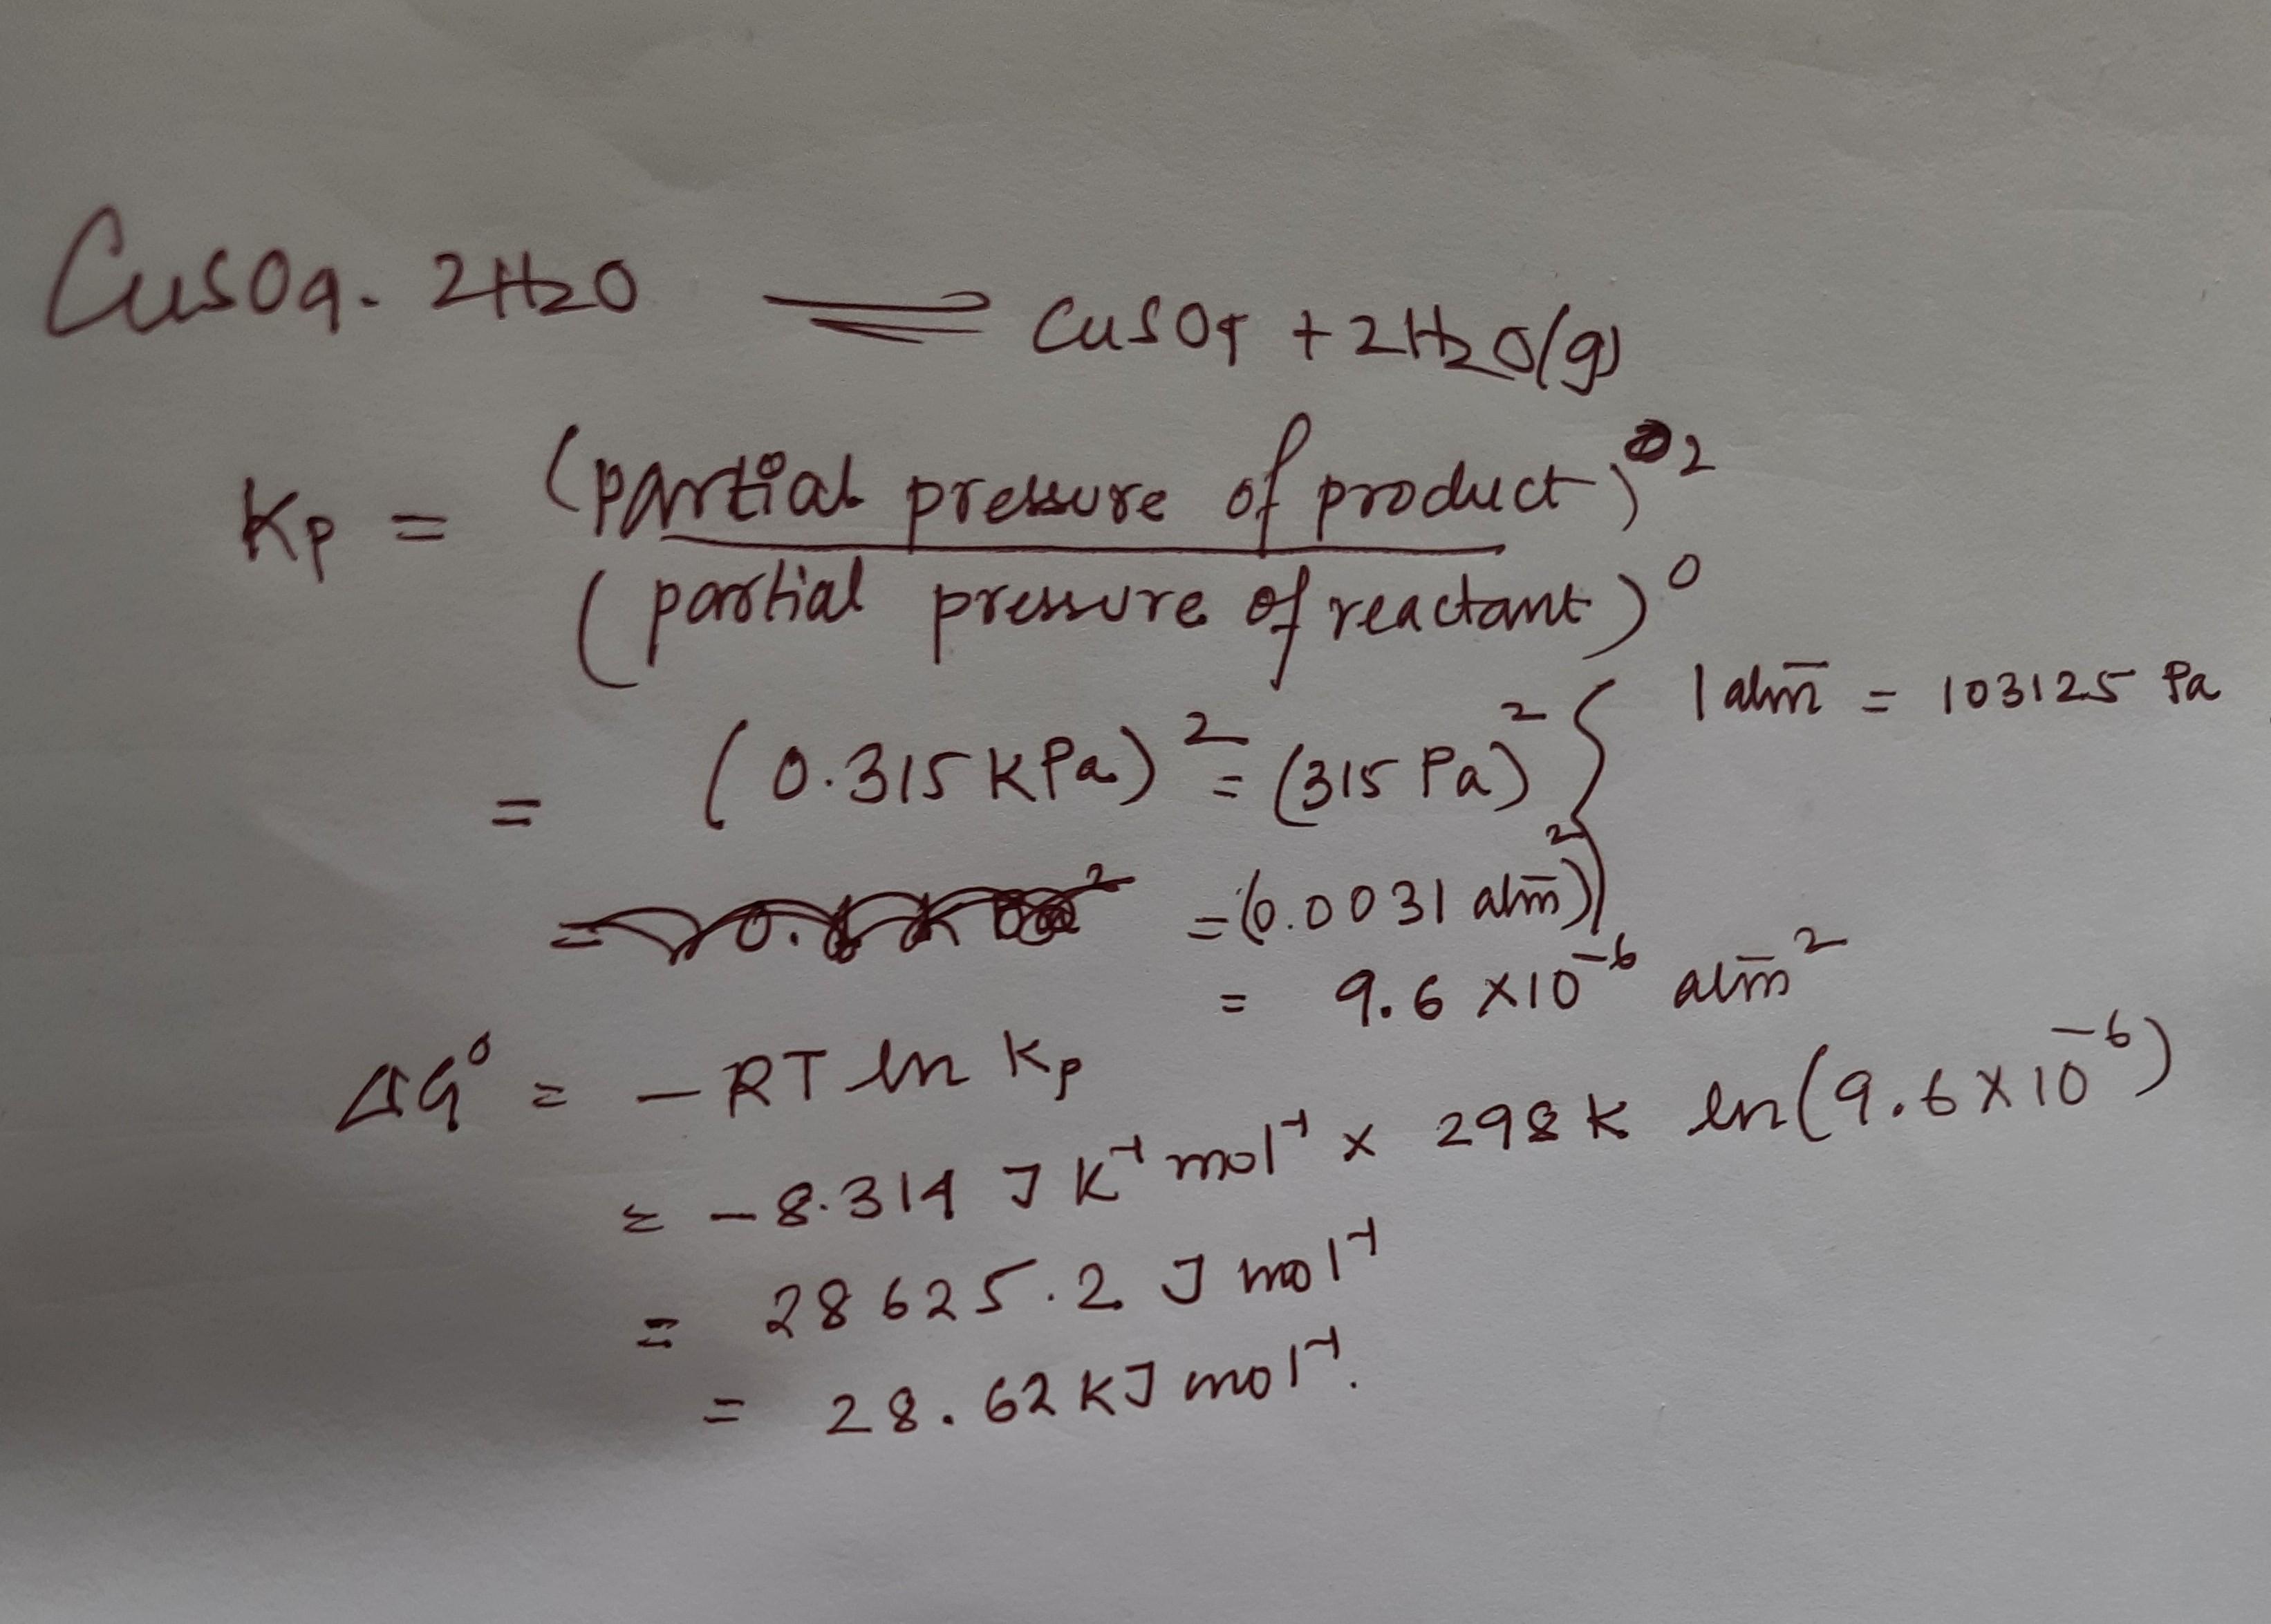 CuSO4. 2H2O ⇌ CuSO4 + 2H2O(g)
Kp = (partial pressure of product)^2 / (partial pressure of reactant)^0
= (0.315 KPa)^2 = (315 Pa)^2 { 1 atm = 103125 Pa
= (0.0031 atm)^2
= 9.6 × 10^-6 atm^2
ΔG° = - RT ln Kp
= - 8.314 J K^-1 mol^-1 × 298 K ln(9.6 × 10^-6)
= 28625.2 J mol^-1
= 28.62 KJ mol^-1.